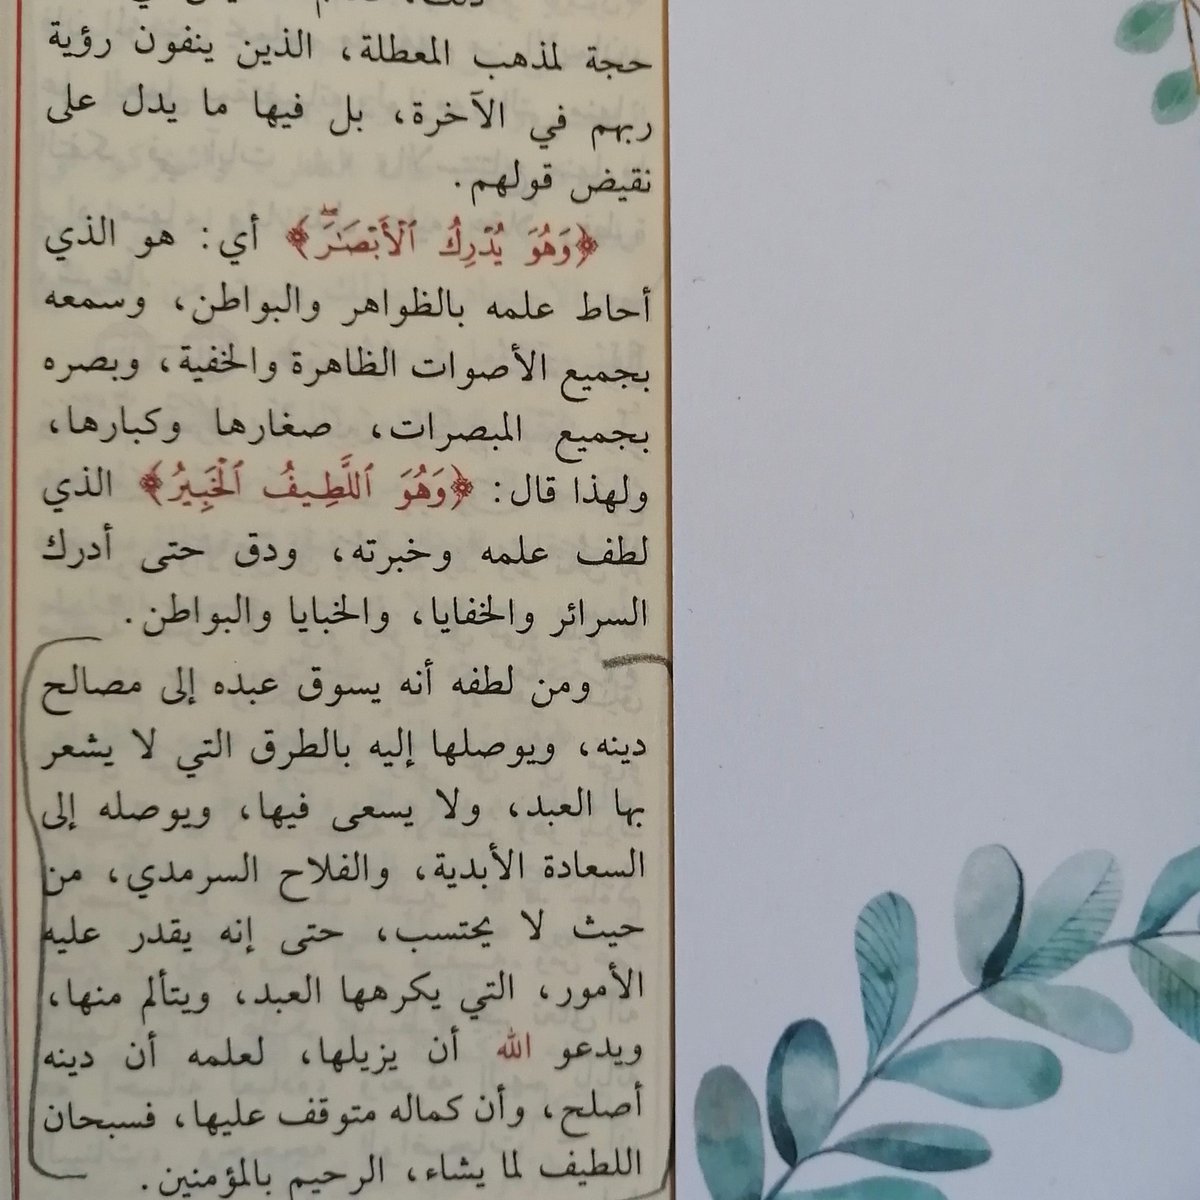 حجة لمذهب المعطلة، الذين ينفون رؤية
ربهم في الآخرة، بل فيها ما يدل على
نقيض قولهم.
﴿وَهُوَ يُدْرِكُ ٱلْأَبْصَـٰرَۖ﴾ أي: هو الذي
أحاط علمه بالظواهر والبواطن، وسمعه
بجميع الأصوات الظاهرة والخفية، وبصره
بجميع المبصرات، صغارها وكبارها،
ولهذا قال: ﴿وَهُوَ ٱللَّطِيفُ ٱلْخَبِيرُ﴾ الذي
لطف علمه وخبرته، ودق حتى أدرك
السرائر والخفايا، والخبايا والبواطن.
ومن لطفه أنه يسوق عبده إلى مصالح
دينه، ويوصلها إليه بالطرق التي لا يشعر
بها العبد، ولا يسعى فيها، ويوصله إلى
السعادة الأبدية، والفلاح السرمدي، من
حيث لا يحتسب، حتى إنه يقدر عليه
الأمور، التي يكرهها العبد، ويتألم منها،
ويدعو الله أن يزيلها، لعلمه أن دينه
أصلح، وأن كماله متوقف عليها، فسبحان
اللطيف لما يشاء، الرحيم بالمؤمنين.